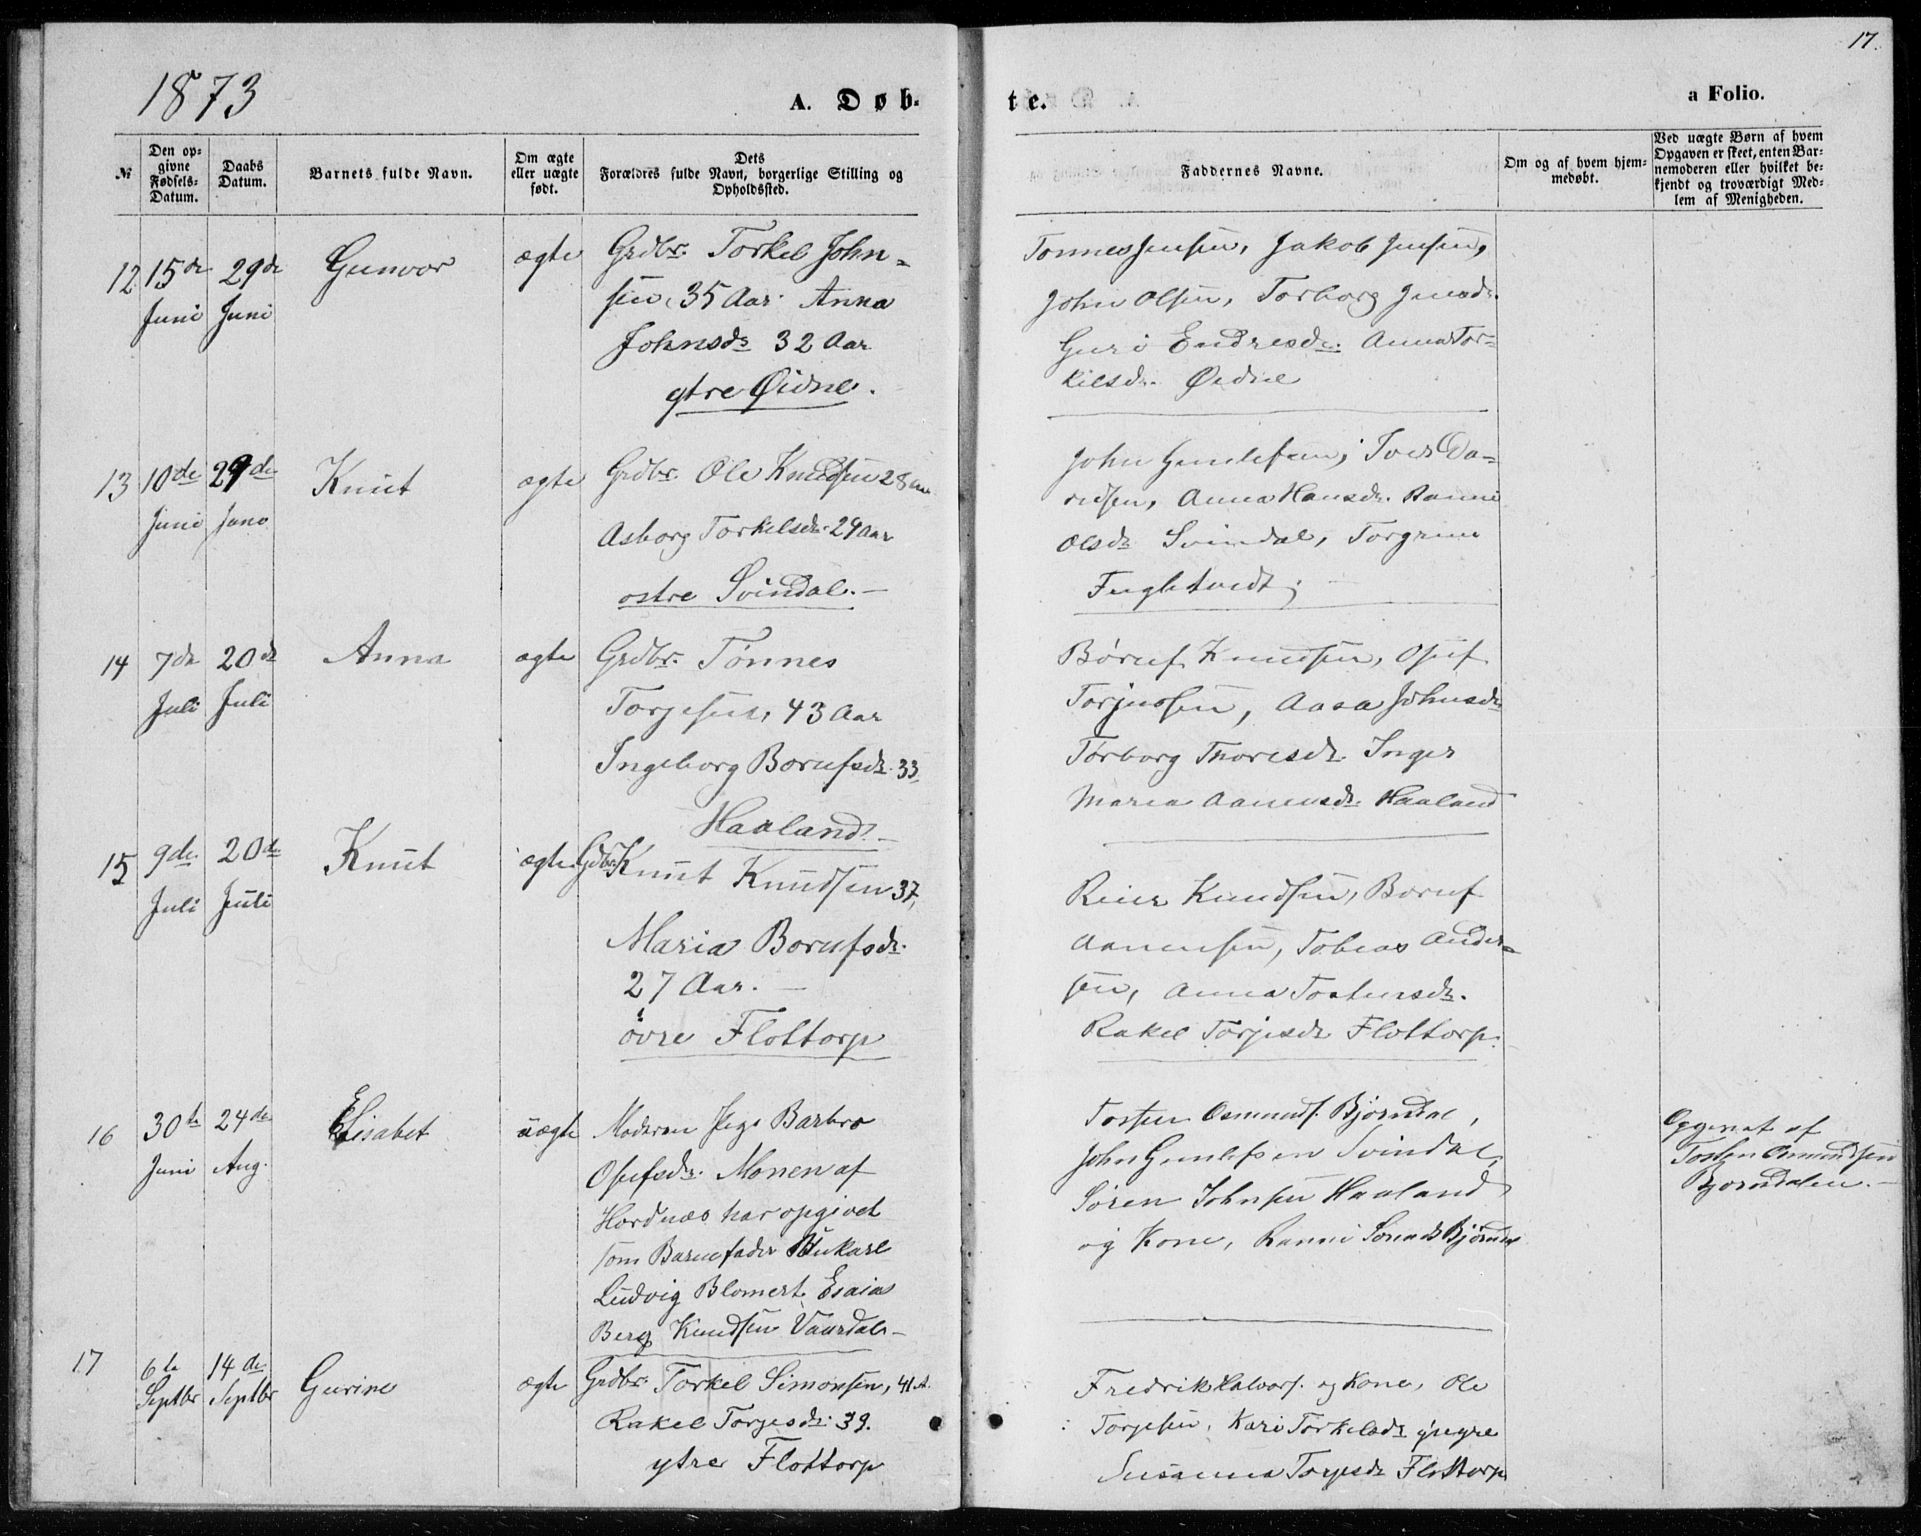 17.
1873
A. Døb-
te.
a Folio.
№
Den op-
givne
Fødsels-
Datum.
Daabs
Datum.
Barnets fulde Navn.
Om ægte
eller uægte
født.
Dets
Forældres fulde Navn, borgerlige Stilling og
Opholdssted.
Faddernes Navne.
Om og af hvem hjem-
medøbt.
Ved uægte Børn af hvem
Opgaven er skeet, enten Bar-
nemoderen eller hvilket be-
kjendt og troværdigt Med-
lem af Menigheden.
12 15de 29de Gunvor ægte Grdbr. Torkel John-
Juni Juni sen, 35 Aar. Anna
Johnsdr 32 Aar
ytre Øidne.
Tønnes Jensen, Jakob Jensen,
John Olsen, Torborg Jensdr.
Guri Endresdr. Anna Tor-
kelsdr. Øidne
13 10de 29de Knut ægte Grdbr. Ole Knudsen 28 Aar
Juni Juno Asborg Torkelsdr. 29 Aar
ostre Svindal.
John Gunlefsen, Iver Da-
vidsen, Anna Hansdr. Ranne
Olsdr Svindal, Torgrim
Fugletvedt
14 7de 20de Anna ægte Grdbr. Tønnes
Juli Juli Torjesen, 43 Aar
Ingeborg Borufsdr. 33,
Haaland.
Børuf Knudsen, Osuf
Torjussen, Aasa Johnsdr
Torborg Thoresdr. Inger
Maria Aanensdr. Haaland
15 9de 20de Knut ægte Gdbr. Knut Knudsen 37,
Juli Juli Maria Borufsdr.
27 Aar.
övre Flottorp
Reier Knudsen, Boruf
Aanensen, Tobias Ander-
sen, Anna Tostensdr.
Rakel Torjesdr Flottorp.
16 30te 24de Elisabet uægte Moderen Pige Barbro
Juni Aug. Osufsdr. Monen af
Hordnæs har opgivet
som Barnefader Unkarl
Ludvig Blomert Esaias
Berg Knudsen Vaardal
Tosten Osmunds. Bjørndal,
John Gunlefsen Svindal,
Søren Johnsen Haaland
og Kone, Ranni Bjørndal
Opgivet af
Tosten Osmundsen
Bjorndalen.
17 6te 14de Gurine ægte Grdbr. Torkel Simonsen, 41 A.
Septbr Septbr Rakel Torjesdr. 39.
ytre Flottorp
Fredrik Halvors. og Kone, Ole
Torjesen, Kari Torkelsdr yngre
Susanna Torjesdr Flottorp